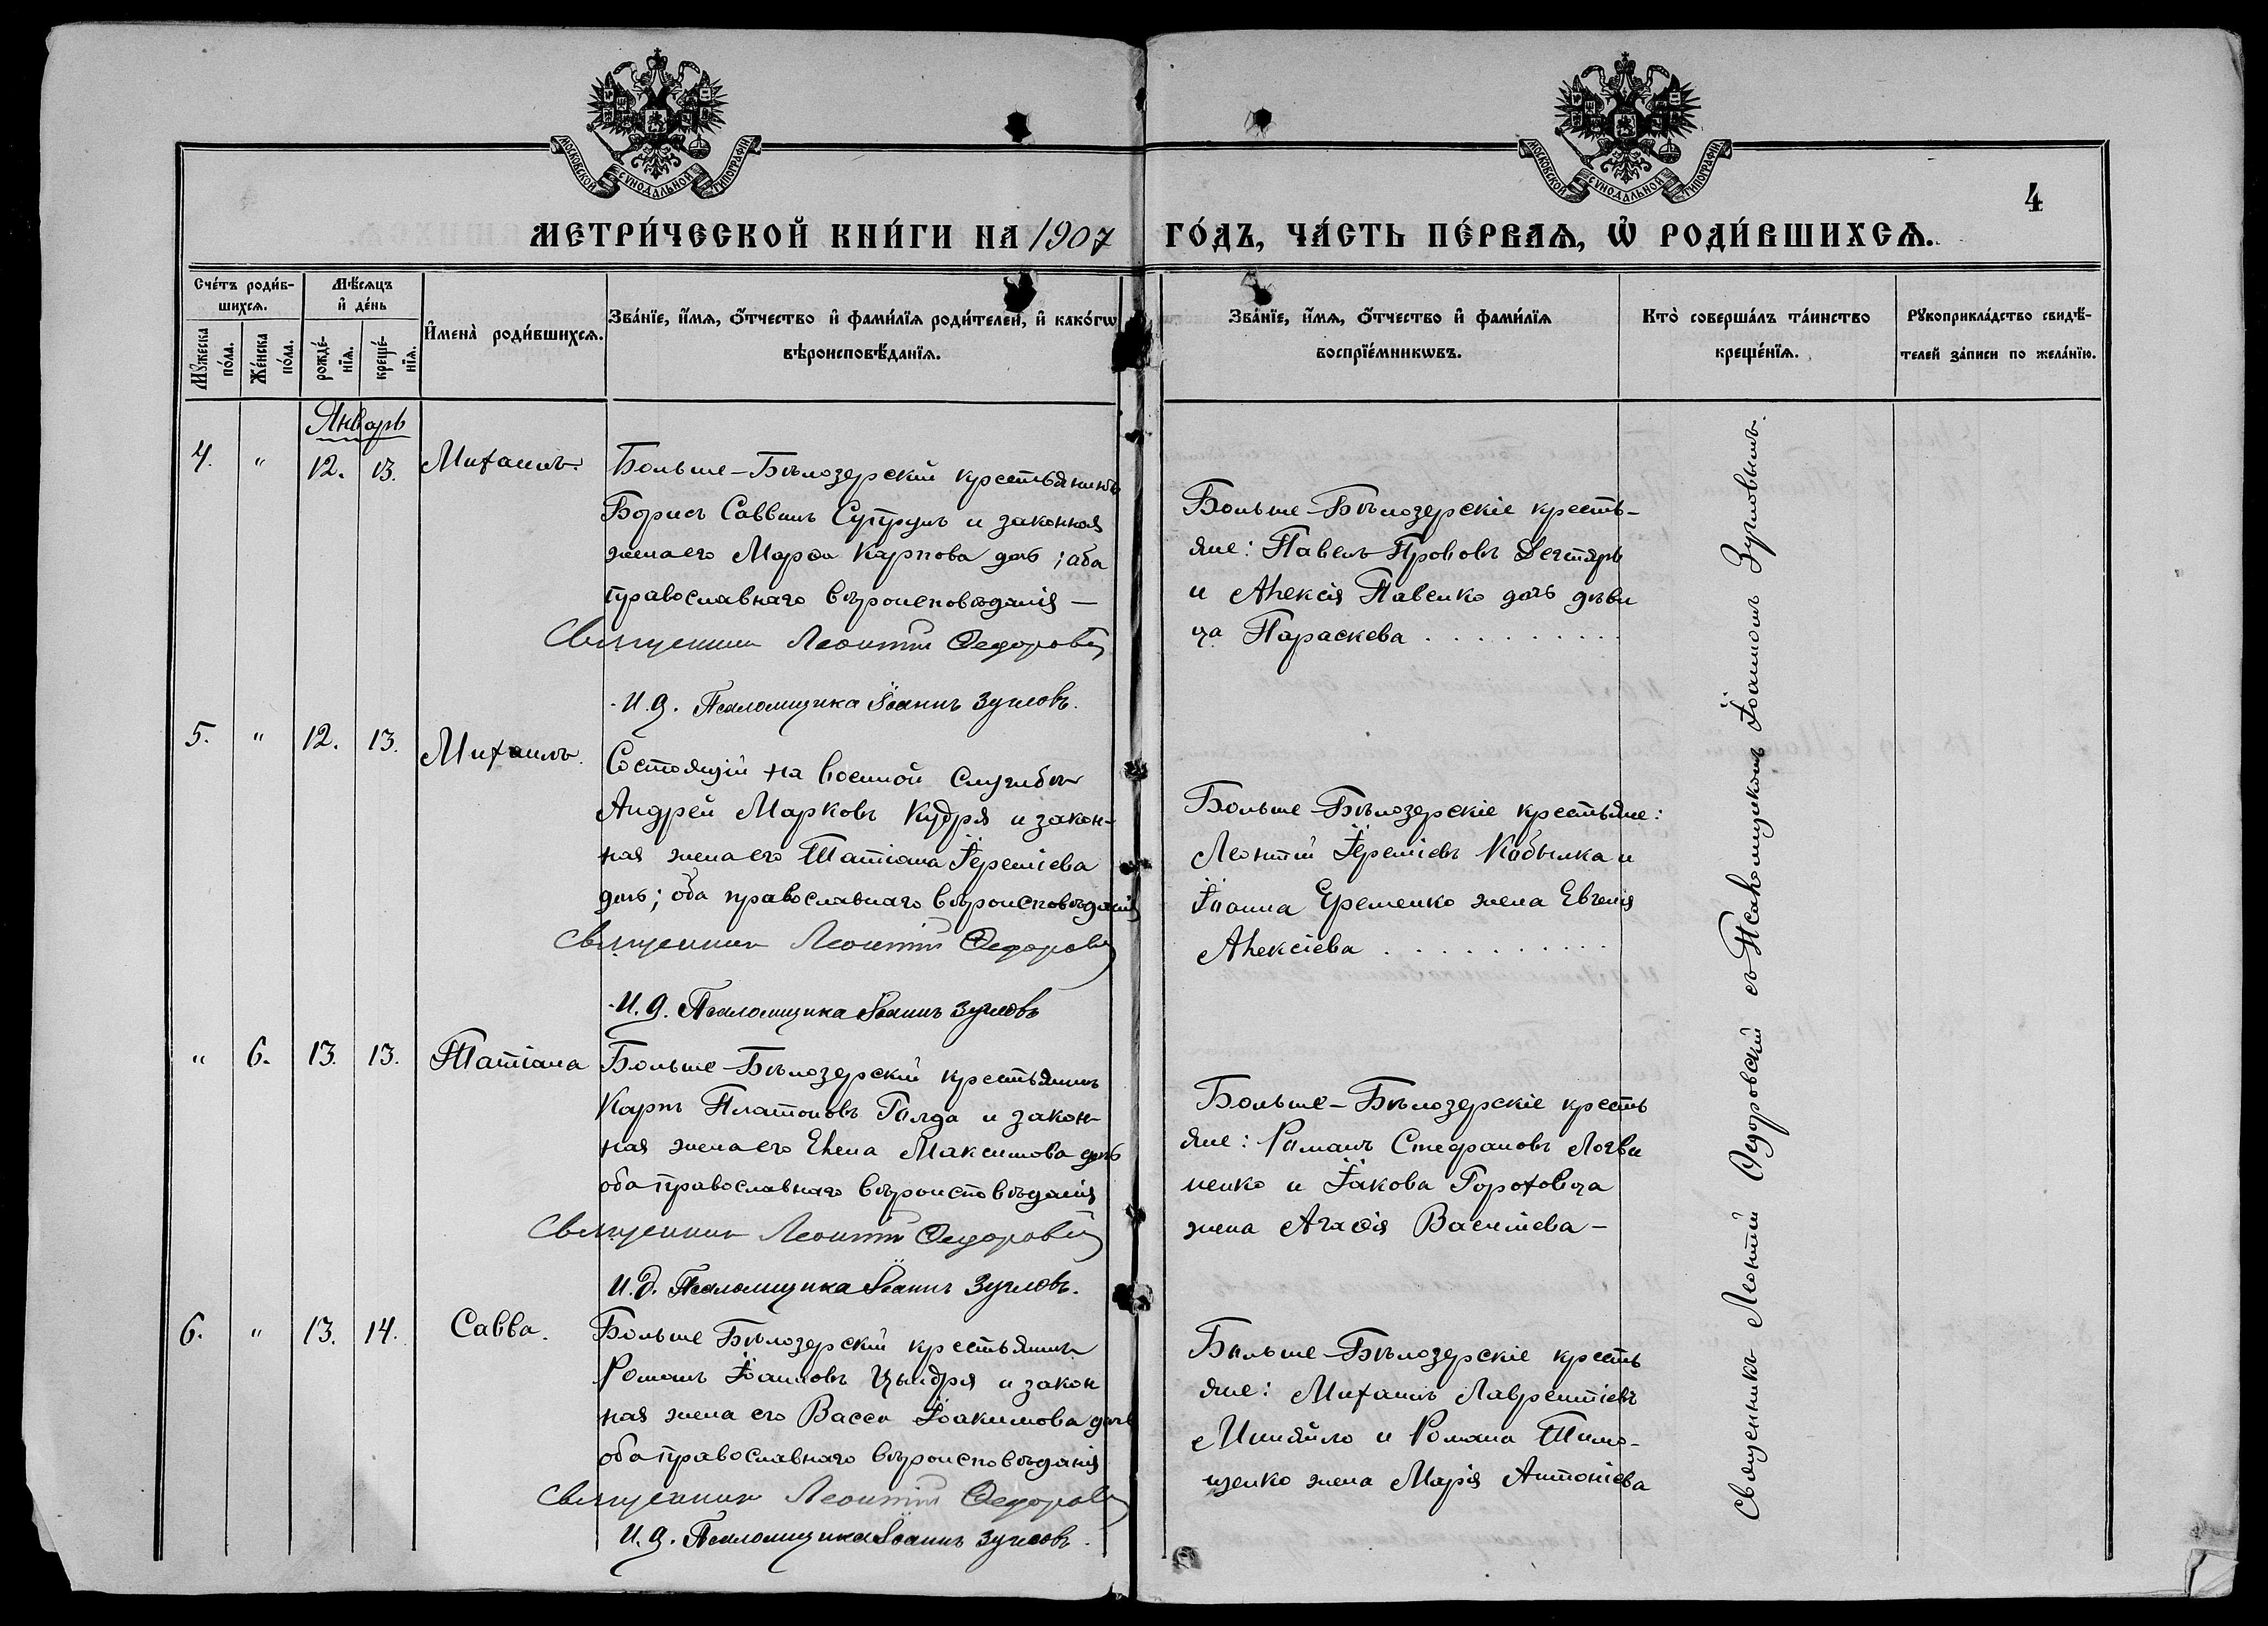 МОСКОВСКОЙ СѴНОДАЛЬНОЙ ТИПОГРАФІИ
МОСКОВСКОЙ СѴНОДАЛЬНОЙ ТИПОГРАФІИ
4
МЕТРИ́ЧЕСКОЙ КНИ́ГИ НА 1907 ГО́ДЪ, ЧА́СТЬ ПЕ́РВАЯ, Ѡ РОДИ́ВШИХСЯ.
Сче́тъ роди́в-
шихся.
Мꙋжеска
по́ла.
Же́нска
по́ла.
Мѣ́сяцъ
и҆ де́нь
рожде́-
нїя.
креще́-
нїя.
И҆мена̀ роди́вшихся.
Зва́нїе, и҆́мя, ѻ҆́тчество и҆ фами́лїя роди́телей, и҆ како́гѡ
вѣроисповѣ́данїя.
Зва́нїе, и҆́мя, ѻ҆́тчество и҆ фами́лїя
воспрїе́мникѡвъ.
Кто̀ соверша́лъ та́инство
креще́нїя.
Рꙋкоприкла́дство свидѣ́-
телей за́писи по жела́нїю.
Январь
4. " 12. 13. Михаилъ
Больше-Бѣлозерскій крестьянинъ
Борисъ Саввинъ Супрунъ и законная
жена его Марѳа Карпова дочь; оба
православнаго вѣроисповѣданія —
Священник Леонтій Ѳедоровскій
И. д. Псаломщика Іоаннъ Зугловъ.
Больше-Бѣлозерскіе кресть-
яне: Павелъ Прововъ Дегтярь
и Алексія Павенко дочь дѣви
ца Параскева . . . . . . . . . .
5. " 12. 13. Михаилъ.
Состоящій на военной службѣ
Андрей Марковъ Кудря и закон-
ная жена его Татіана Іереміева
дочь; оба православнаго вѣроисповѣданія
Священник Леонтій Ѳедоровскій
И. д. Псаломщика Іоаннъ Зугловъ
Больше-Бѣлозерскіе крестьяне:
Леонтій Іереміевъ Кобылка и
Іоанна Еременко жена Евгенія
Алексіева . . . . . . . . . .
" 6. 13. 13. Татіана
Больше-Бѣлозерскій крестьянинъ
Карпъ Платоновъ Галда и закон-
ная жена его Елена Максимова дочь
оба православнаго вѣроисповѣданія
Священник Леонтій Ѳедоровскій
И. д. Псаломщика Іоаннъ Зугловъ.
Больше-Бѣлозерскіе кресть
яне: Романъ Стефановъ Логви
ненко и Іакова Гороховца
жена Агаѳія Василіева —
6. " 13. 14. Савва.
Больше Бѣлозерскій крестьянинъ
Романъ Іоанновъ Цындря и закон
ная жена его Васса Іоакимова дочь
оба православнаго вѣроисповѣданія
Священник Леонтій Ѳедоровскій
И. д. Псаломщика Іоаннъ Зугловъ.
Больше-Бѣлозерскіе кресть
яне: Михаилъ Лаврентіевъ
Миняйло и Романа Тимо-
щенко жена Марія Антоніева
Священникъ Леонтій Ѳедоровскій съ Псаломщикомъ Іоанномъ Зугловымъ.